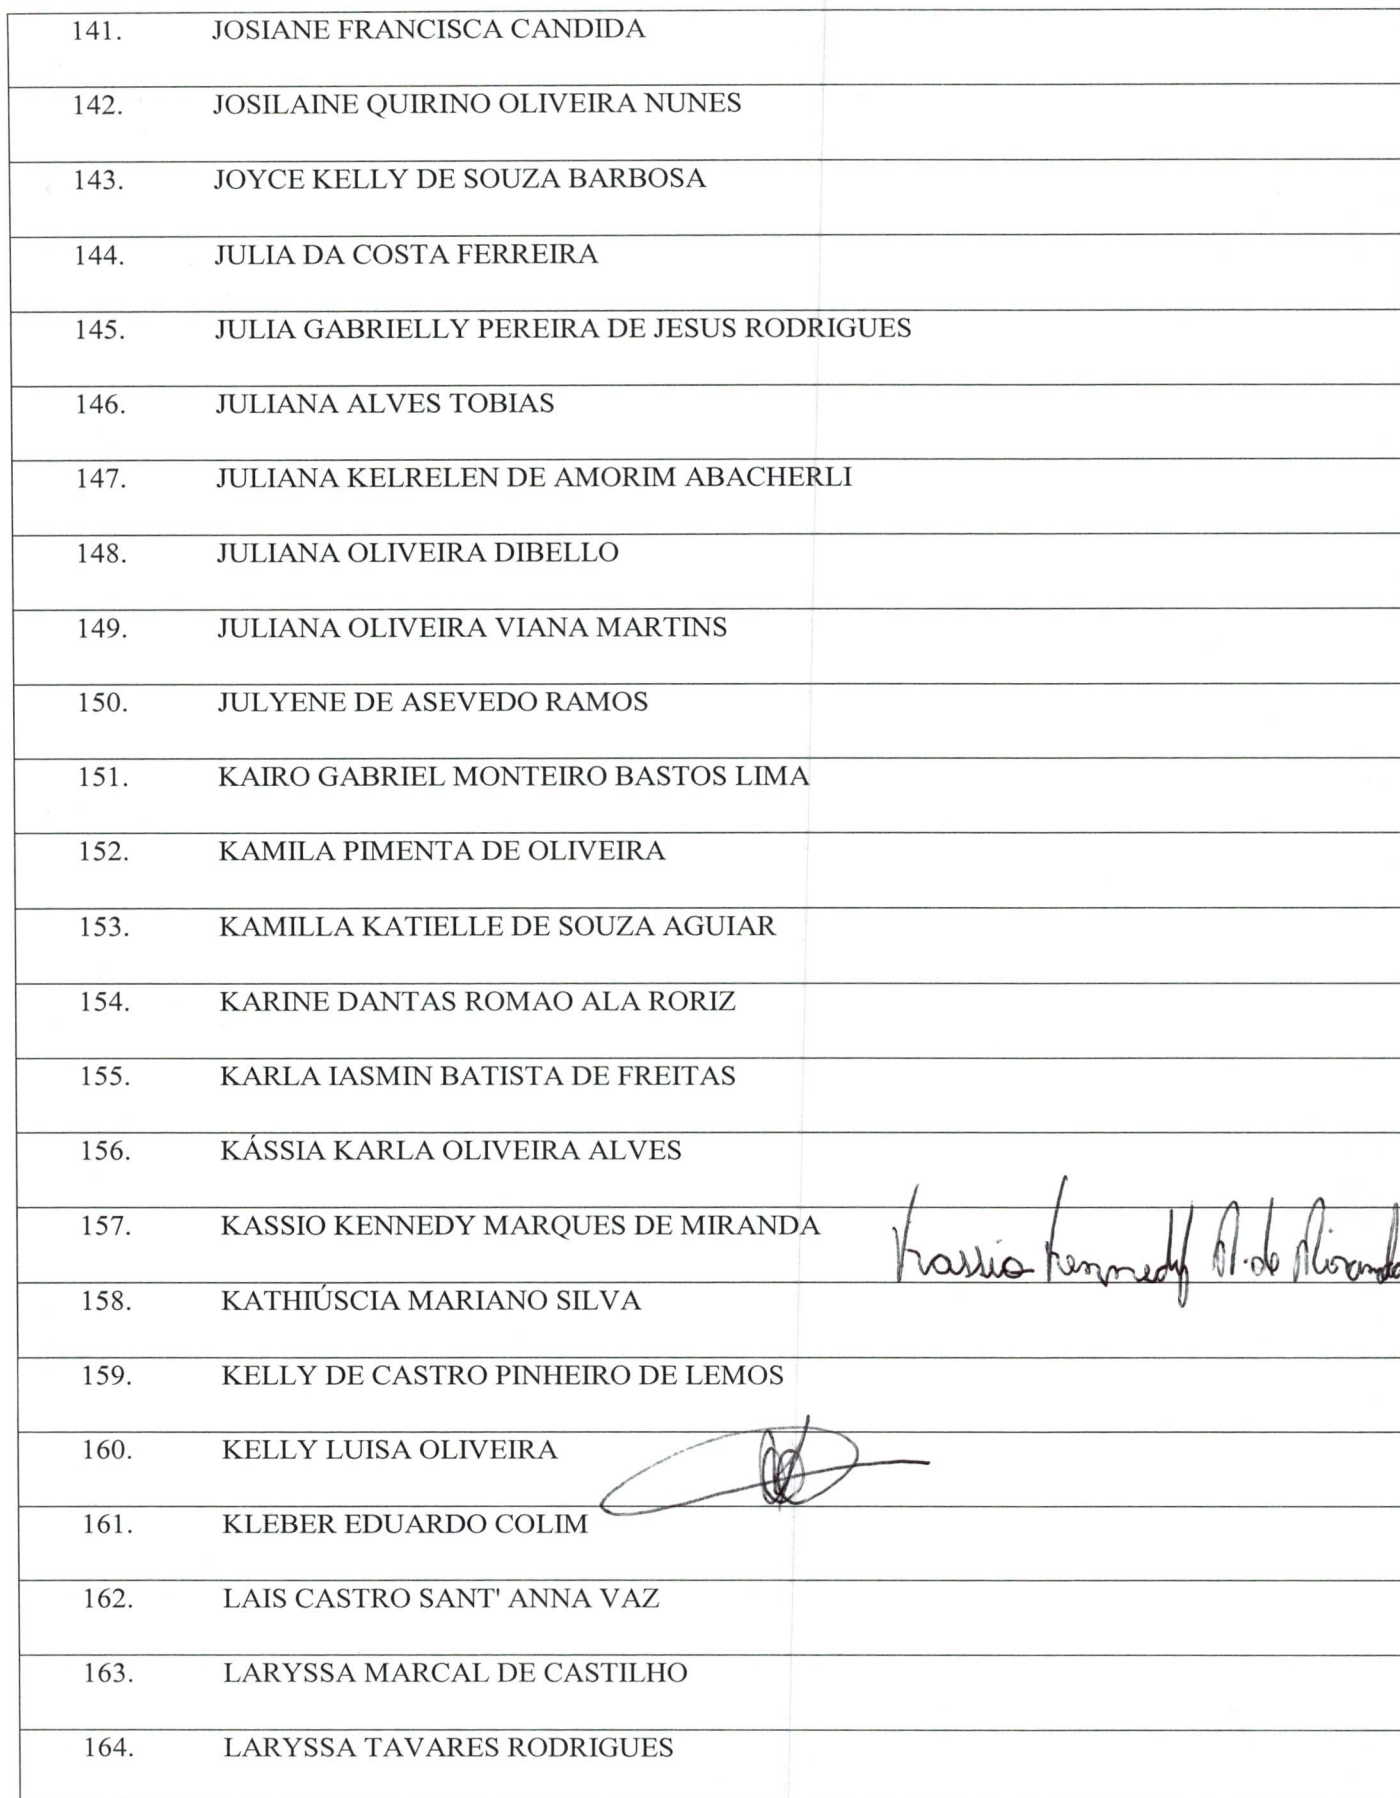 141. JOSIANE FRANCISCA CANDIDA
142. JOSILAINE QUIRINO OLIVEIRA NUNES
143. JOYCE KELLY DE SOUZA BARBOSA
144. JULIA DA COSTA FERREIRA
145. JULIA GABRIELLY PEREIRA DE JESUS RODRIGUES
146. JULIANA ALVES TOBIAS
147. JULIANA KELRELEN DE AMORIM ABACHERLI
148. JULIANA OLIVEIRA DIBELLO
149. JULIANA OLIVEIRA VIANA MARTINS
150. JULYENE DE ASEVEDO RAMOS
151. KAIRO GABRIEL MONTEIRO BASTOS LIMA
152. KAMILA PIMENTA DE OLIVEIRA
153. KAMILLA KATIELLE DE SOUZA AGUIAR
154. KARINE DANTAS ROMAO ALA RORIZ
155. KARLA IASMIN BATISTA DE FREITAS
156. KÁSSIA KARLA OLIVEIRA ALVES
157. KASSIO KENNEDY MARQUES DE MIRANDA Kassio Kennedy M. de Miranda
158. KATHIÚSCIA MARIANO SILVA
159. KELLY DE CASTRO PINHEIRO DE LEMOS
160. KELLY LUISA OLIVEIRA
161. KLEBER EDUARDO COLIM
162. LAIS CASTRO SANT' ANNA VAZ
163. LARYSSA MARCAL DE CASTILHO
164. LARYSSA TAVARES RODRIGUES